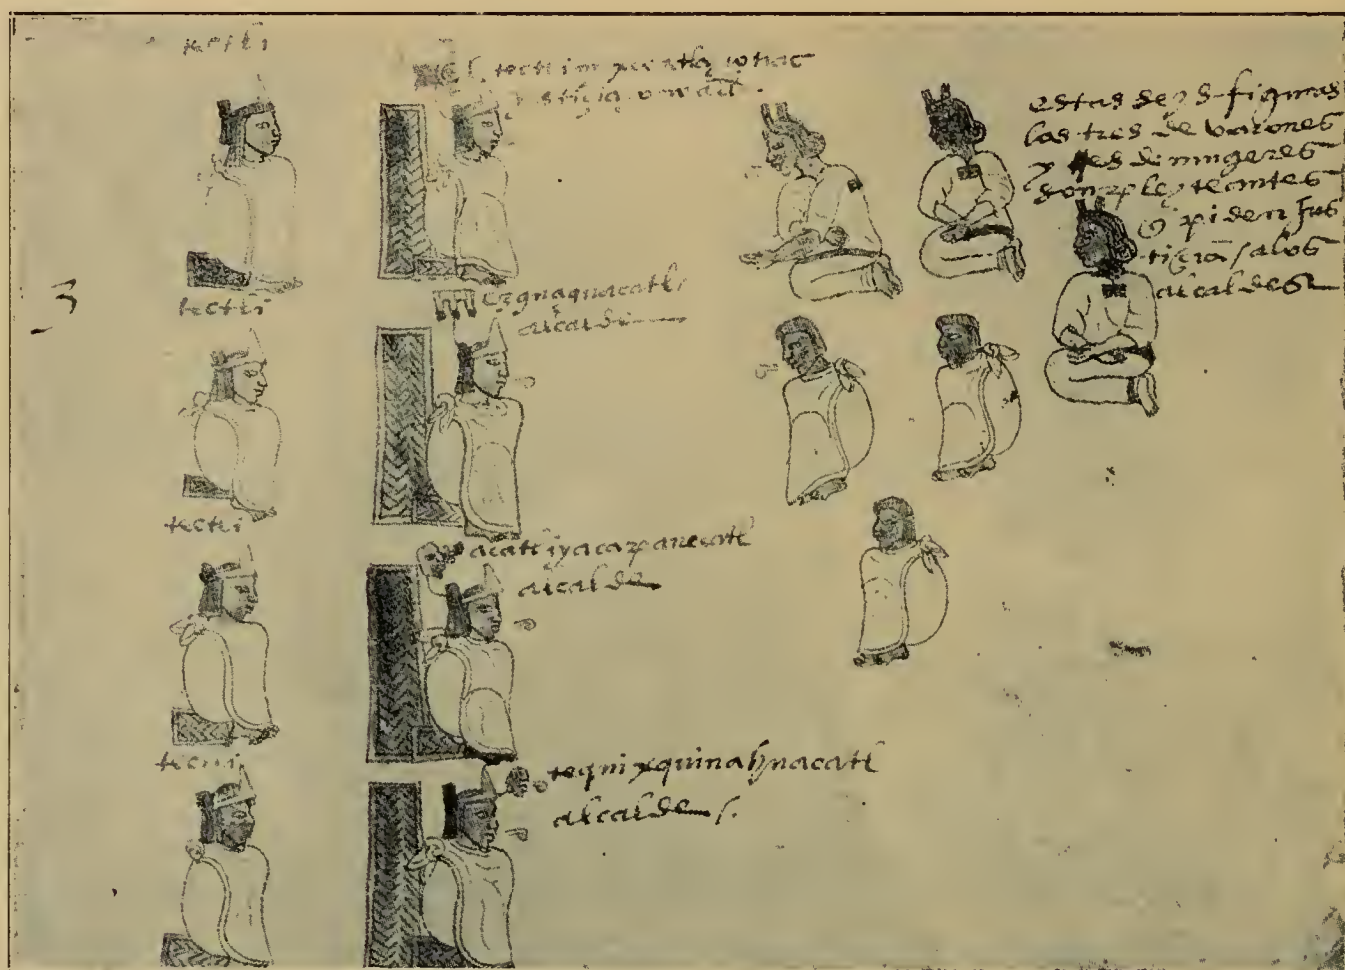 tectli
justiçia
estas seys figuras
las tres de varones
y tres de mugeres
son pleyteantes
q̃ piden Jus
tiçia / a los
alcaldes
3
tectli
ezguaguacatl
alcalde
tectli
acatliyacapanecatl
alcalde
tectli
tequixquinahuacatl
alcalde /.